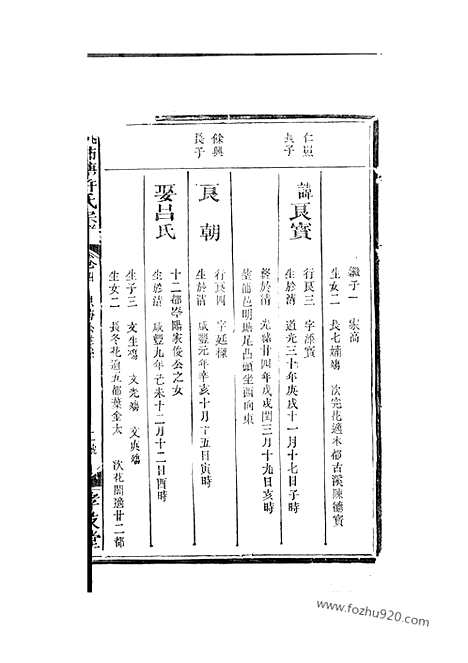 繼子一 家高
生女二 長七嬌殤 次完花適本都古溪陳德寶
仁照
諱良寶
行良三 字添寶
生於清 道光三十年庚戌十一月十七日子時
終於清 光緒廿四年戊戌閏三月十九日亥時
坐西向東
餘興
長子
良朝
行良四 字廷樑
生於清 咸豐元年辛亥十月十五日寅時
娶呂氏
十二都 公之女
生於清 咸豐九年己未十二月十二日酉時
生子三 文生殤 文光殤 文典殤
生女二 長冬花適五都葉金太 次花開適廿二都
許氏宗
www.fozhu920.com